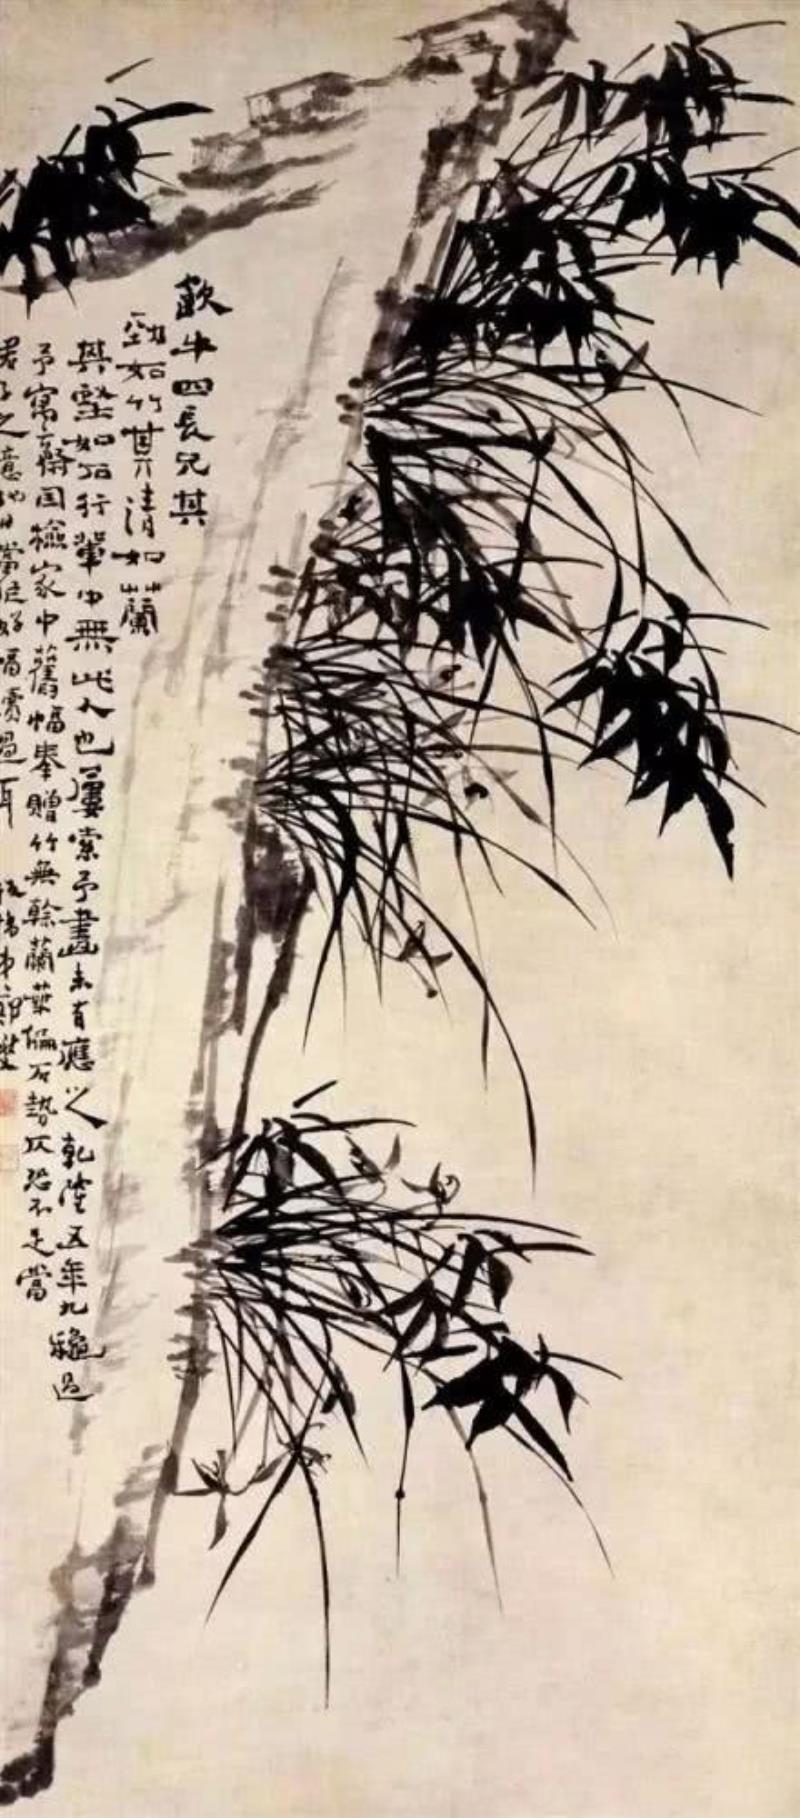 歙牛四長兄其
勁如竹其清如蘭
其堅如石行輩中無此人也屢索予畫未有應之乾隆五年九龝過
予寓齋因檢家中舊幅奉贈竹無榦蘭葉偏石勢仄恐不足當
君子之意他日當作好幅贖過耳 板橋弟鄭燮